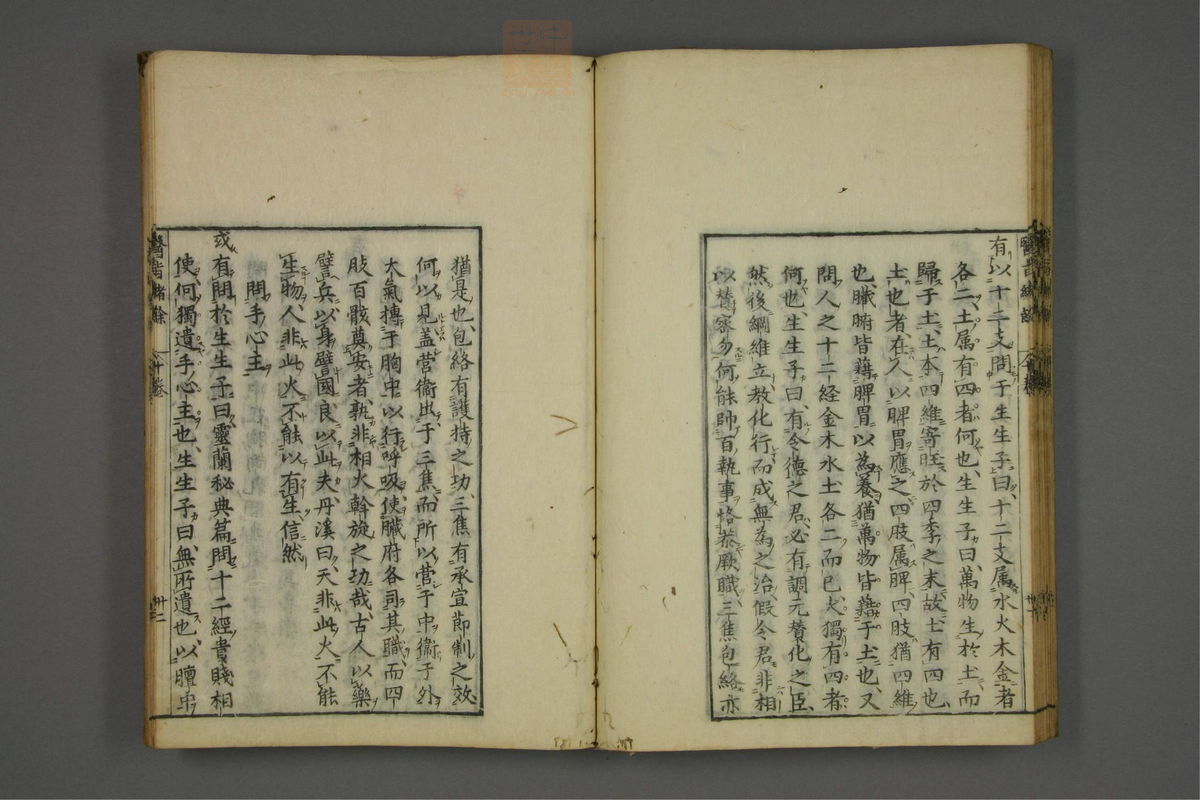 有以十二支問于生生子曰、十二支属水火木金者
各二、土属有四者何也、生生子曰萬物生於土而
歸于土、土本四維寄旺於四季之末故土有四也
土也者在人以脾胃應之四肢属脾、四肢猶四維
也、臓腑皆藉脾胃以為養猶萬物皆藉于土也又
問人之十二経金木水土各二而已火獨有四者
何也、生生子曰、有令德之君必有調元贊化之臣、
然後綱維立教化行而成無為之治、假令君非相
以替密勿何能帥百執事恪恭厥職、三焦包絡亦
猶是也、包絡有護持之功、三焦有承宣節制之效
何以見蓋营衞出于三焦而所以营于中衞于外
大氣搏于胸中以行呼吸使臓府各司其職而四
肢百骸奠安者、孰非相火斡旋之功哉、古人以藥
譬兵以身譬國良以此夫丹溪曰天非此火不能
生物、人非此火不能以有生信然
問手心主
或有問於生生子曰靈蘭秘典篇問十二經貴賤相
使何獨遺手心主也、生生子曰無所遺也、以膻中
醫旨緒餘
卅二